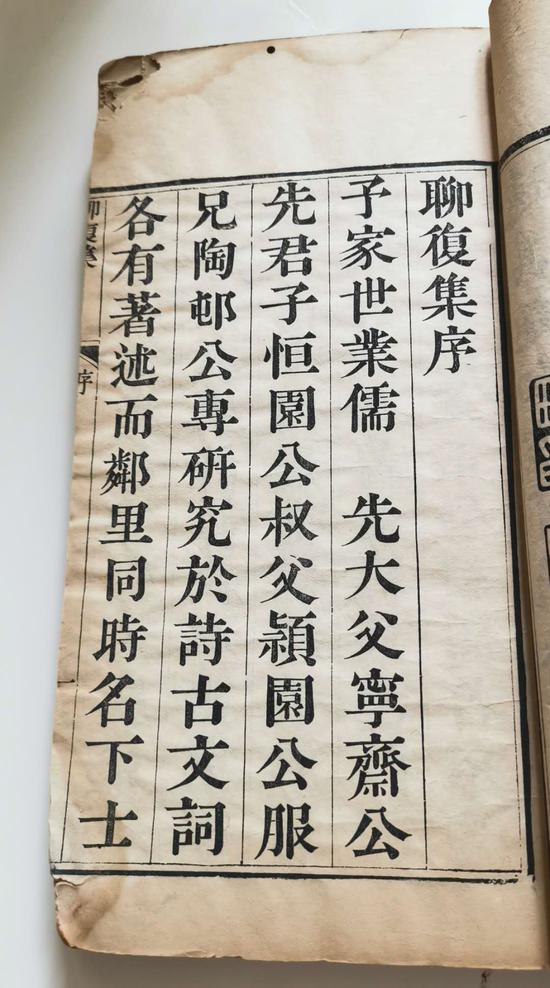 聊復集序
予家世業儒　先大父寧齋公
先君子恒園公叔父頴園公服
兄陶邨公專研究於詩古文詞
各有著述而鄰里同時名下士
聊復集
序